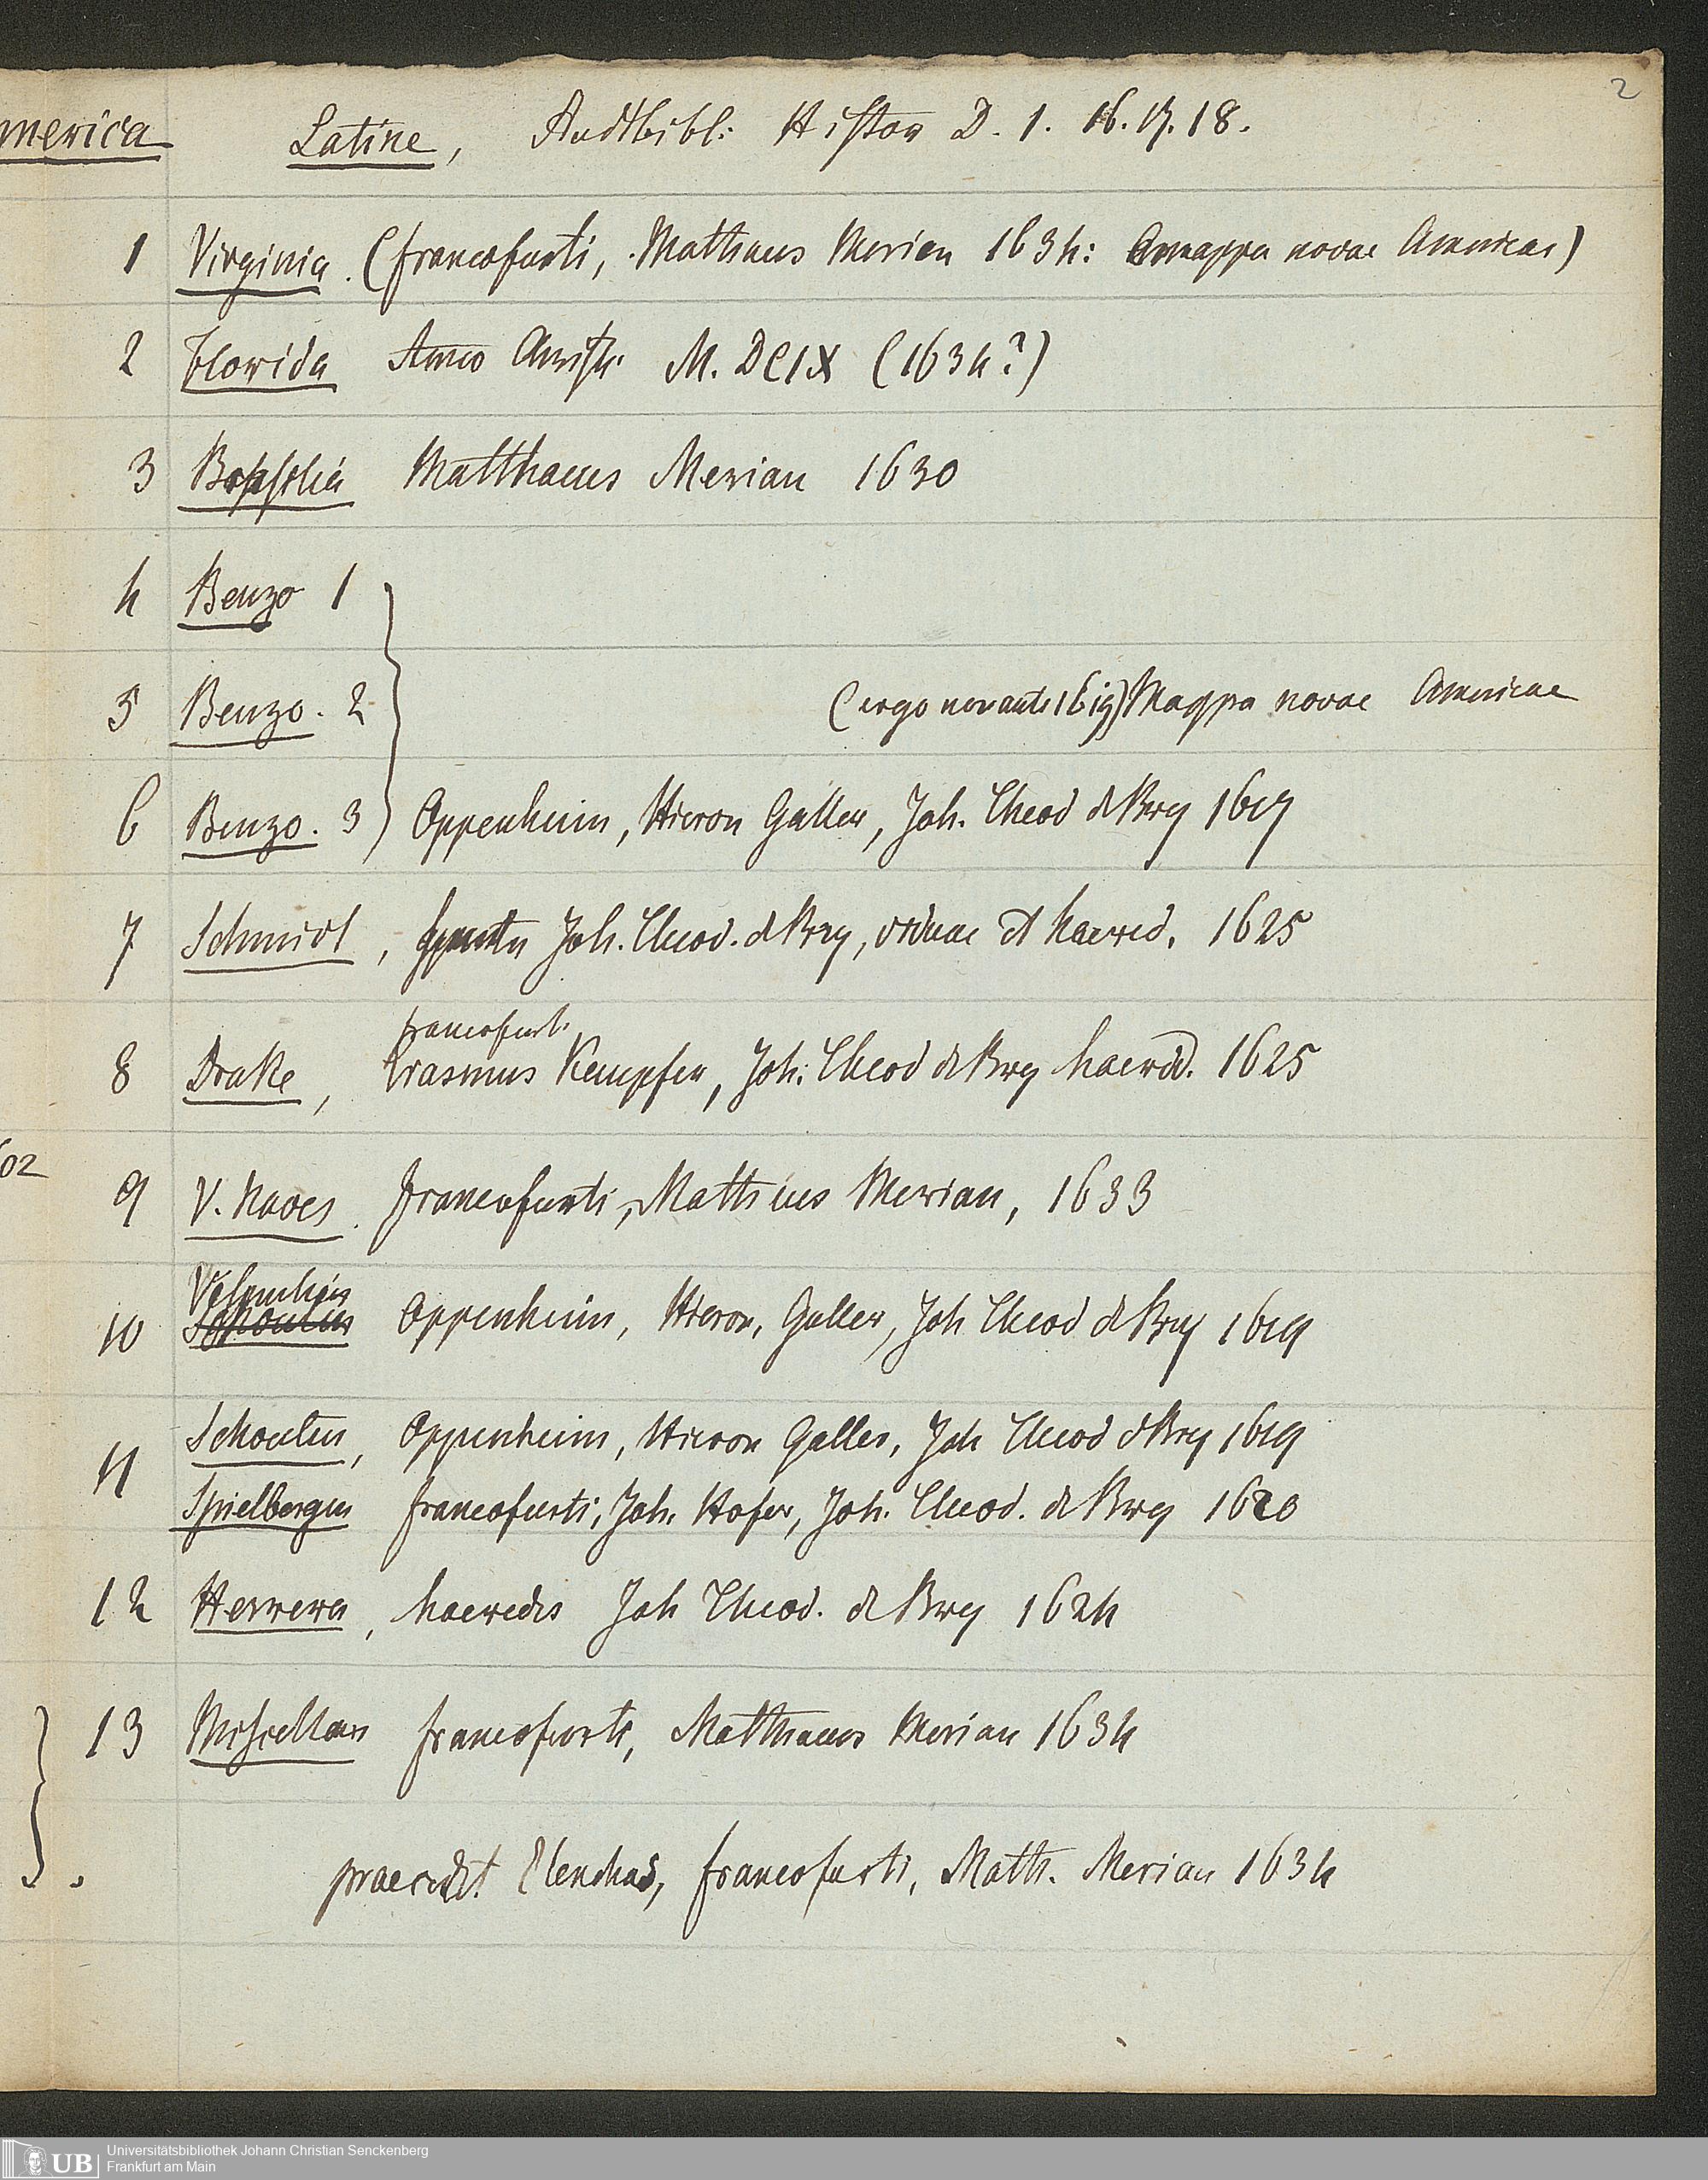 2
merica Latine, Stadtbibl: Histor D. 1. 16. 17. 18.
1 Virginia. (francofurti, Mathaeus Merian 1634: mappa novae Americae)
2 Florida Anno Christi M. DCIX (1634?)
3 Brasilia Matthaeus Merian 1630
4 Benzo 1
5 Benzo. 2 (ergo non ante 1619) Mappa novae Americae
6 Benzo. 3 Oppenheim, Hieron Galler, Joh. Theod de Bry 1617
7 Schmidt, Joh. Theod. de Bry, viduae et haered. 1625
francofurt.
8 Drake, Erasmus Kempfer, Joh. Theod de Bry haered. 1625
602
9 V. Noves. francofurti, Matthaeus Merian, 1633
Vespuchius
10 Schouten Oppenheim, Hieron, Galler, Joh Theod de Bry 1619
11 Schouten, Oppenheim, Hieron Galler, Joh Theod de Bry 1619
Spielbergen francofurti, Joh. Hofer, Joh. Theod. de Bry 1620
12 Herrera, haeredes Joh Theod. de Bry 1624
13 Miscellan francofurti, Matthaeus Merian 1634
praecedit Elenchus, francofurti, Matth. Merian 1634
UB Universitätsbibliothek Johann Christian Senckenberg
Frankfurt am Main